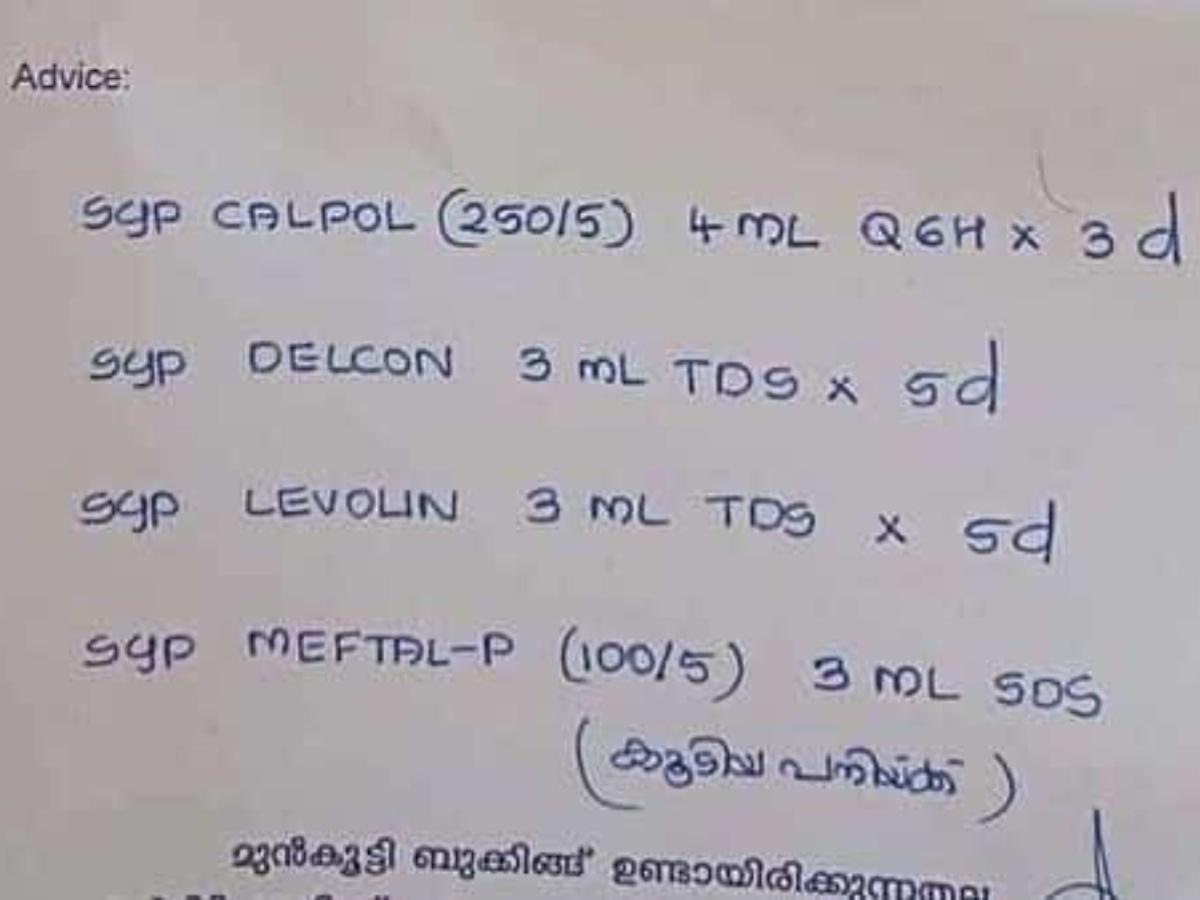 Advice:
Syp CALPOL (250/5) 4 mL Q6H x 3 d
Syp DELCON 3 mL TDS x 5d
Syp LEVOLIN 3 mL TDS x 5d
Syp MEFTAL-P (100/5) 3 mL SOS
(കൂടിയ പനിയ്ക്ക്)
മുൻകൂട്ടി ബുക്കിങ്ങ് ഉണ്ടായിരിക്കുന്നതല്ല